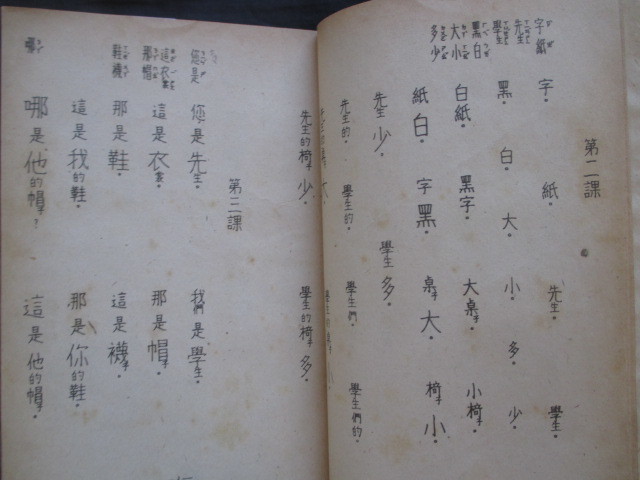 第二課
字紙
先生
學生
黑白
大小
多少
字。紙。先生。學生。
黑。白。大。小。多。少。
白紙。黑字。大桌子。小椅子。
紙白。字黑。桌子大。椅子小。
先生少。學生多。
先生的。學生的。學生們。學生們的。
先生的椅子少。學生的椅子多。
第三課
您是
這衣裳
那帽
鞋襪
哪
您是先生。我們是學生。
這是衣裳。那是帽子。
那是鞋。這是襪子。
這是我的鞋。那是你的鞋。
哪是他的帽子？這是他的帽子。